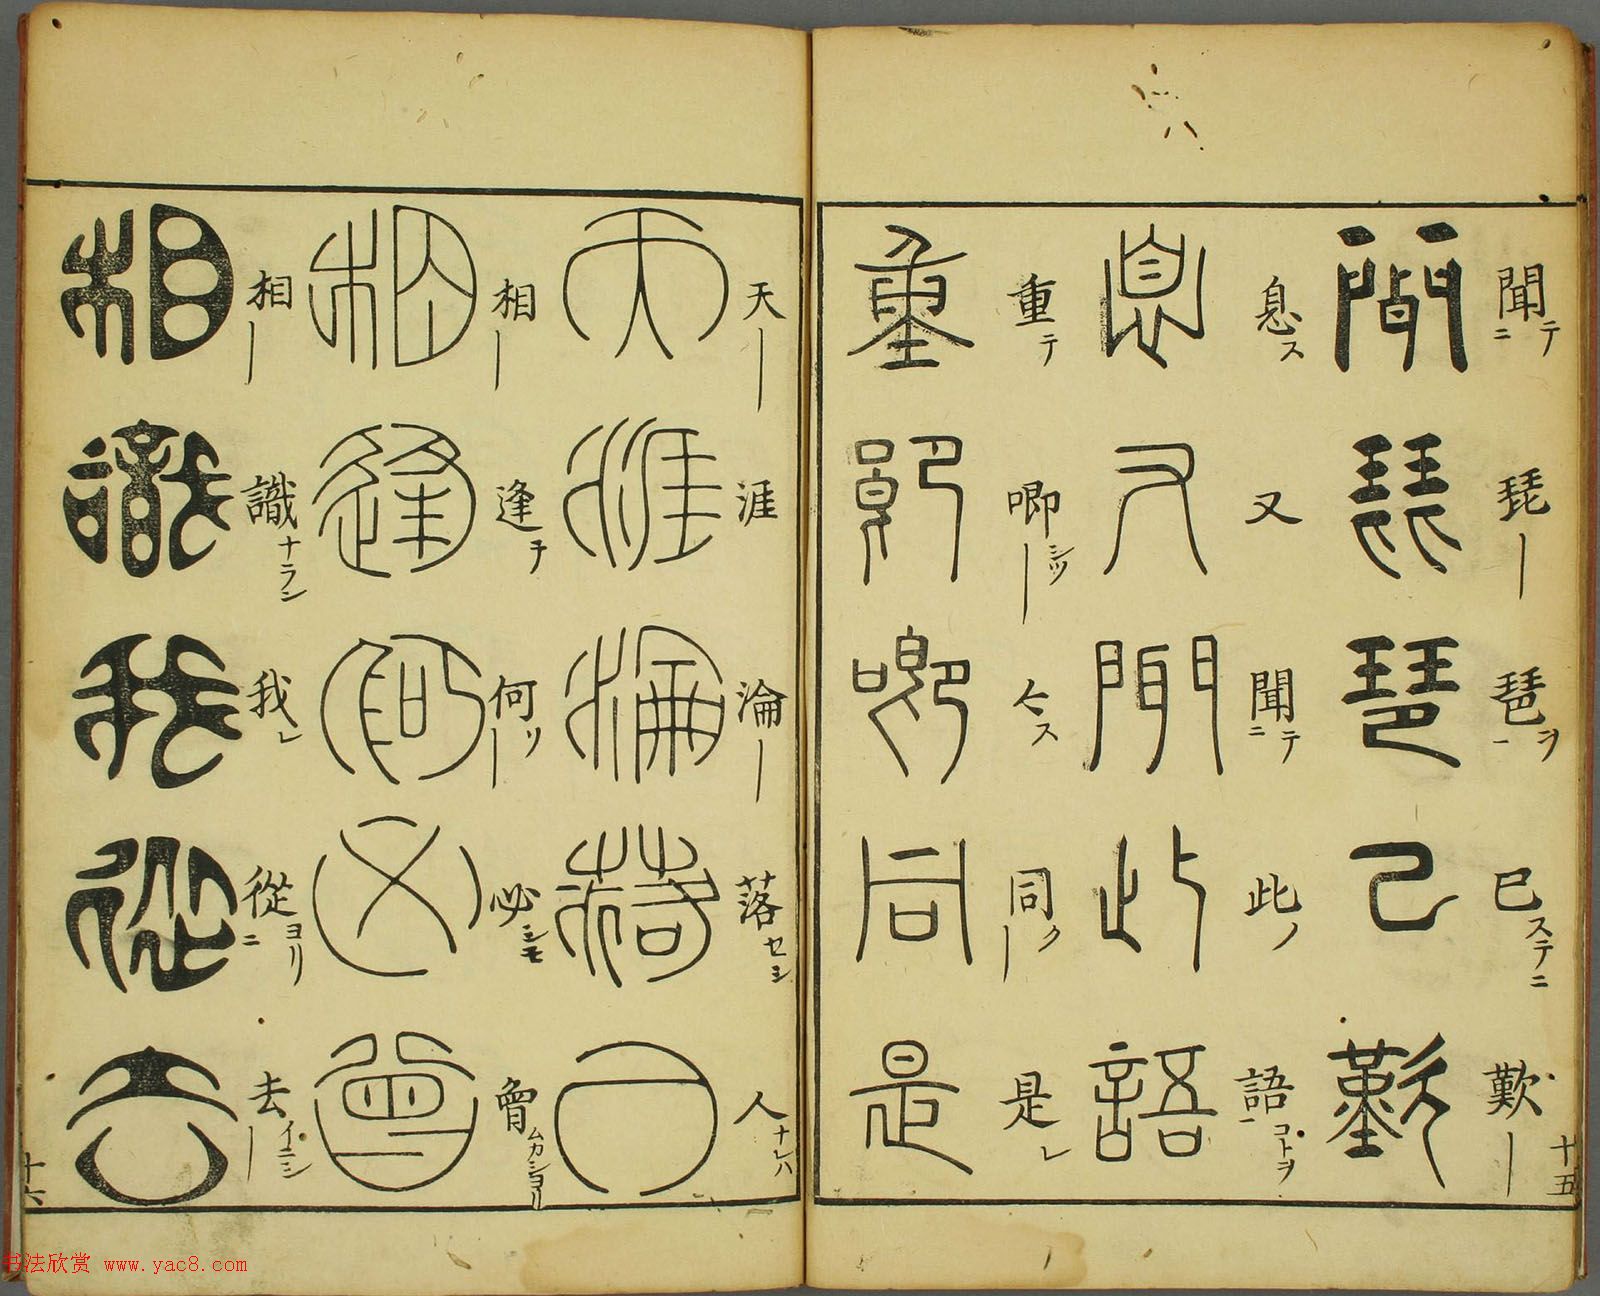 聞テニ 琵― 琶ヲ一 已ステニ 歎―
聞琵琶已歎
息ス 又 聞テニ 此ノ 語コトヲ一
息又聞此語
重テ 唧シツ― 〻ス 同ク― 是レ
重唧唧同是
十五
天― 涯 淪― 落セシ 人ナレハ
天涯淪落人
相― 逢テ 何ソ― 必シモ 曾ムカシヨリ
相逢何必曾
相― 識ナラン 我レ 從ヨリニ 去イニシ―
相識我從去
十六
书法欣赏 www.yac8.com